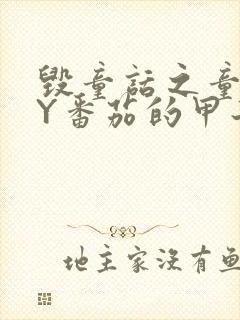 毁童话之童
Y番茄的甲
地主家没有鱼